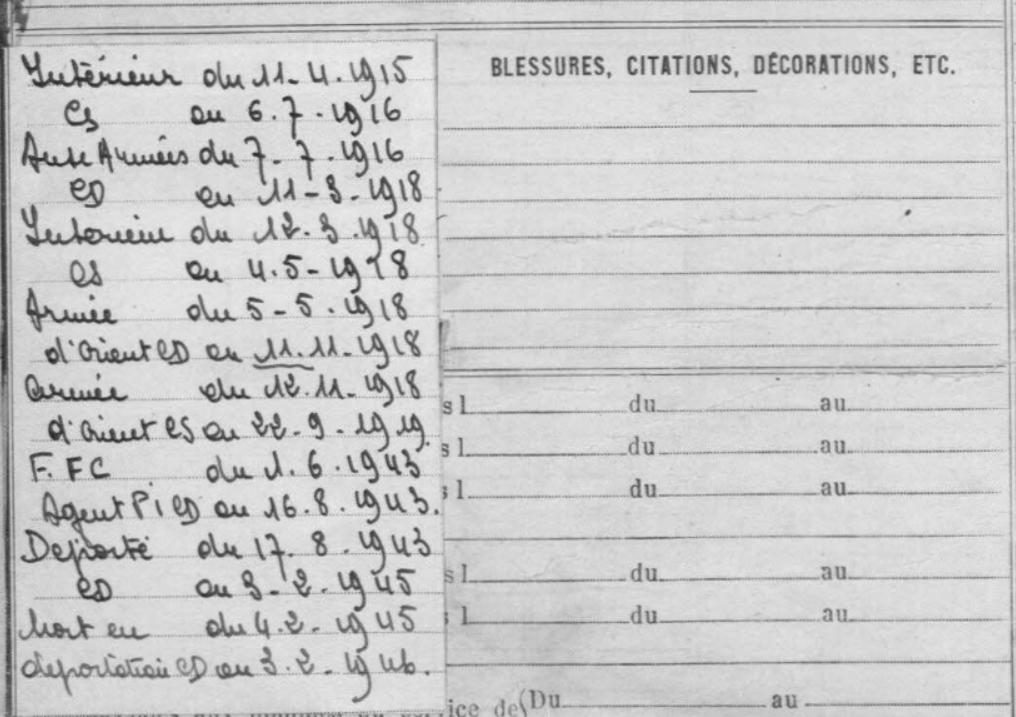 Intérieur du 11-4.1915
CS au 6.7.1916
Aux Armées du 7-7.1916
CD au 11-3-1918
Interieur du 12.3.1918
CS au 4.5-1918
Armée du 5-5.1918
d'Orient CD au 11.11-1918
Armée du 12.11-1918
d'Orient CS au 22.9.1919
F.FC du 1.6.1943
Agent P1 CD au 16.8.1943.
Deporté du 17.8.1943
CD au 3-2.1945
Mort en du 4.2-1945
deportation CD au 3.2-1946.
BLESSURES, CITATIONS, DÉCORATIONS, ETC.
s 1 du au
s 1 du au
s 1 du au
s 1 du au
s 1 du au
ice de (Du au